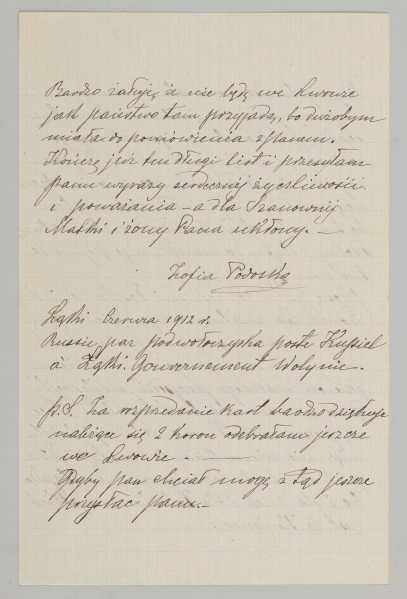 Bardzo żałuję że nie będę we Lwowie
jak państwo tam przyjadą, bo dużobym
miała do pomówienia z Panem.
Kończę już ten długi list i przesyłam
panu wyrazy serdecznej życzliwości
i poważania – a dla Szanownej
Matki i żony Pana ukłony. —
Zofia Podoska
Łąki Czerwca 1912 r.
Russie par Podwołoczyska poste Kupiel
à Łąki. Gouvernement Wolynie.
p.S. Za wyprzedanie kart bardzo dziękuję
należące się 2 koron odebrałam jeszcze
we Lwowie. —
Gdyby pan chciał mogę z tąd jeszcze
przysłać panu.—